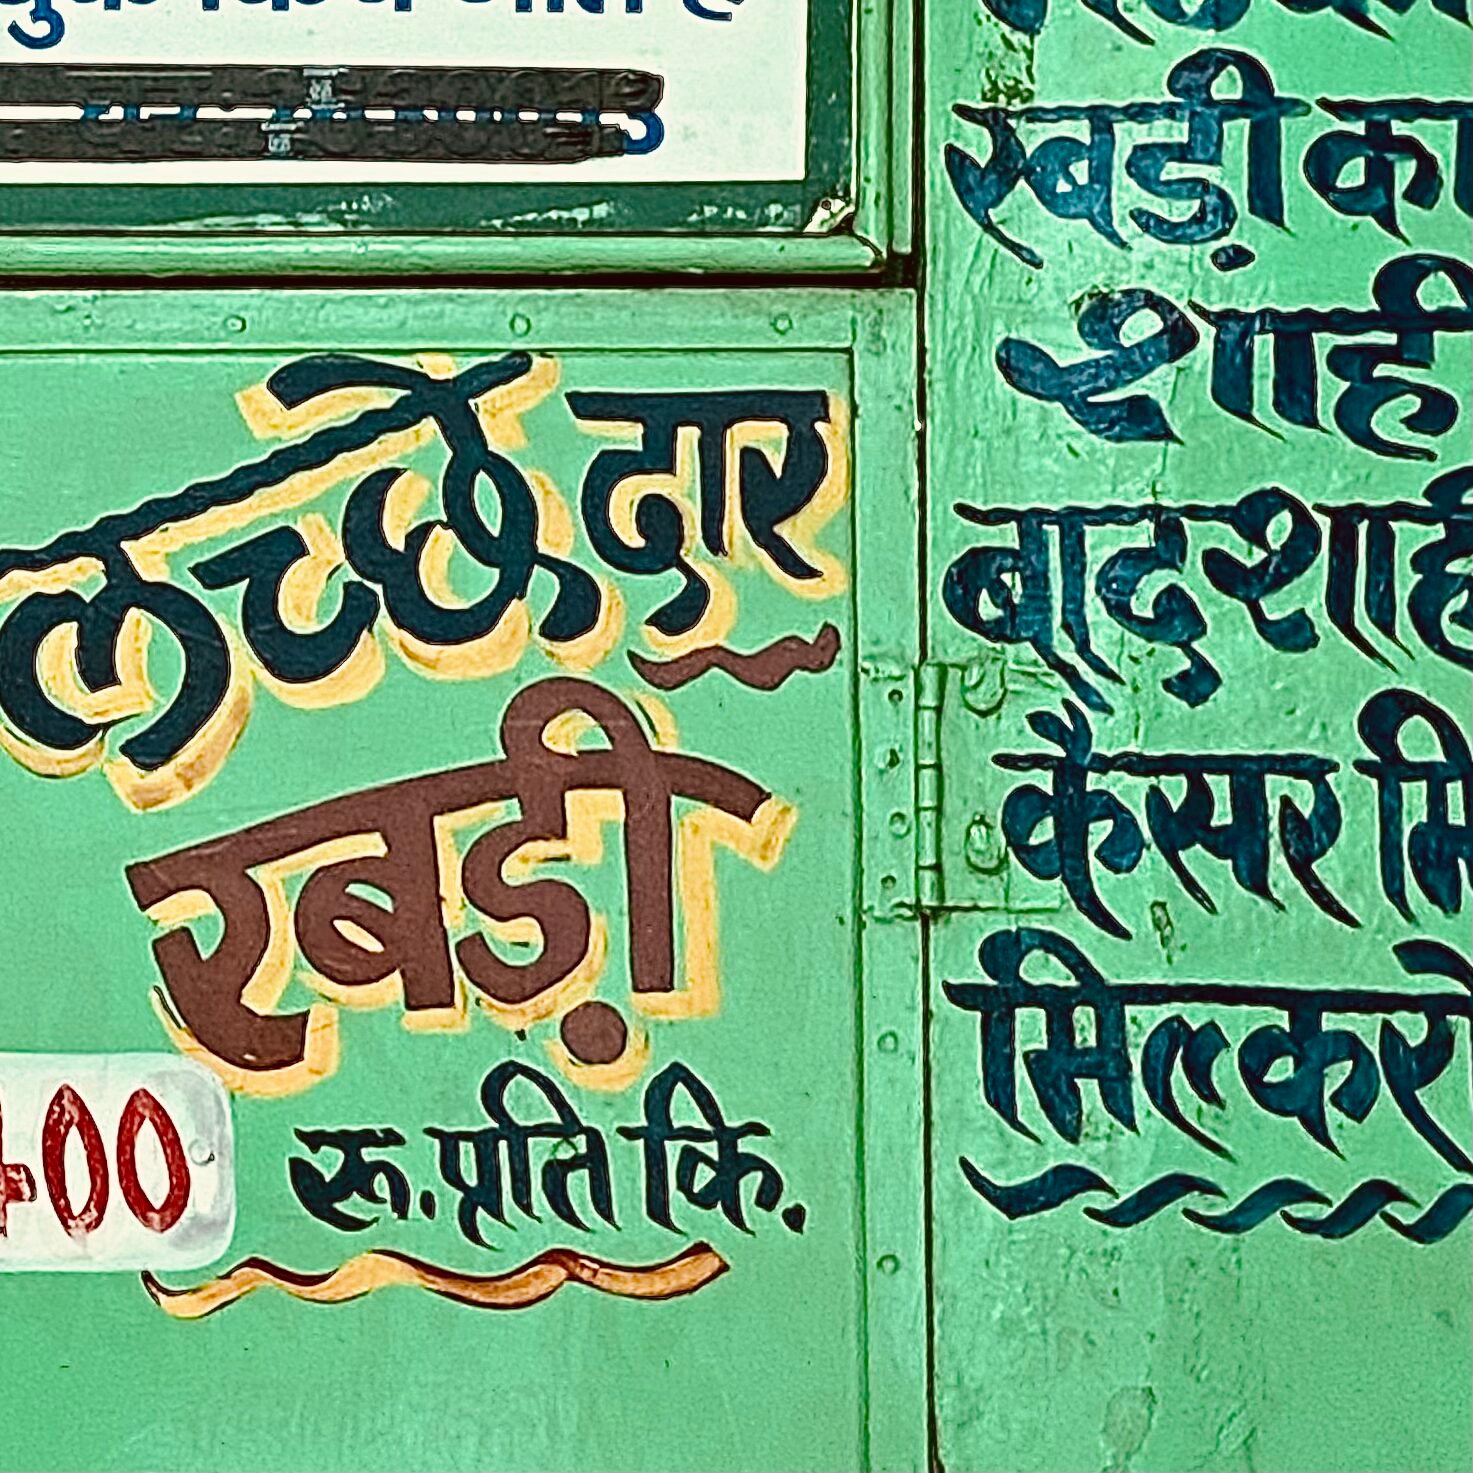 लच्छेदार
रबड़ी
400
रू. प्रति कि.
रबड़ी का
शाही
बादशाही
कैसर मि
मिल्करो